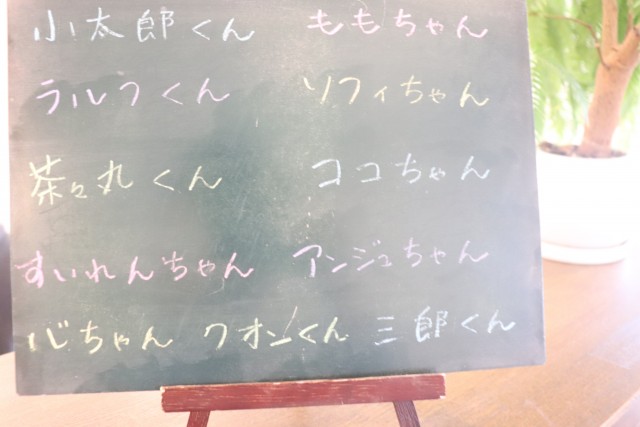 小太郎くん ももちゃん
ラルフくん ソフィちゃん
茶々丸くん ココちゃん
すいれんちゃん アンジュちゃん
心ちゃん クオンくん 三郎くん